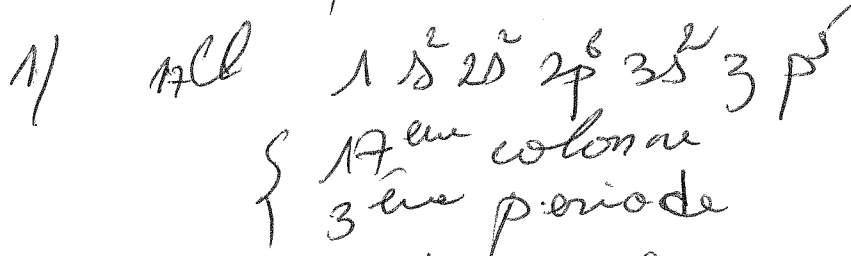 1) ₁₇Cl 1s² 2s² 2p⁶ 3s² 3p⁵
17ème colonne
3ème période